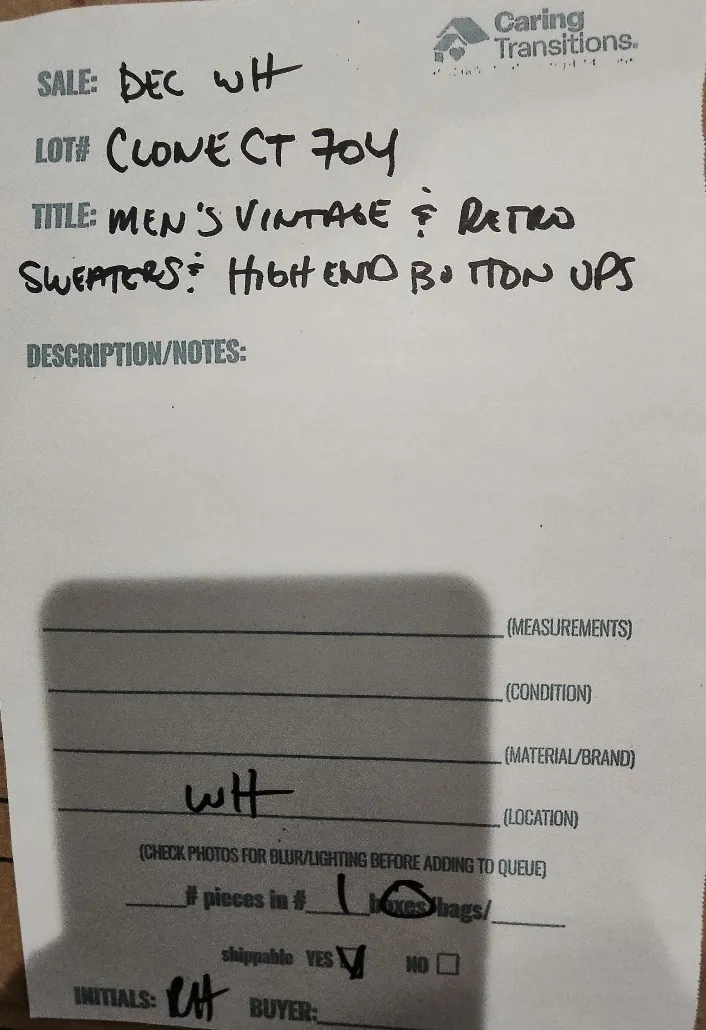 Caring
Transitions.
SALE: DEC WH
LOT# CLONECT 704
TITLE: MEN'S VINTAGE & RETRO
SWEATERS & HIGH END BUTTON UPS
DESCRIPTION/NOTES:
(MEASUREMENTS)
(CONDITION)
(MATERIAL/BRAND)
WH (LOCATION)
(CHECK PHOTOS FOR BLUR/LIGHTING BEFORE ADDING TO QUEUE)
# pieces in # 1 boxes/bags/
shippable YES NO
INITIALS: RH BUYER: